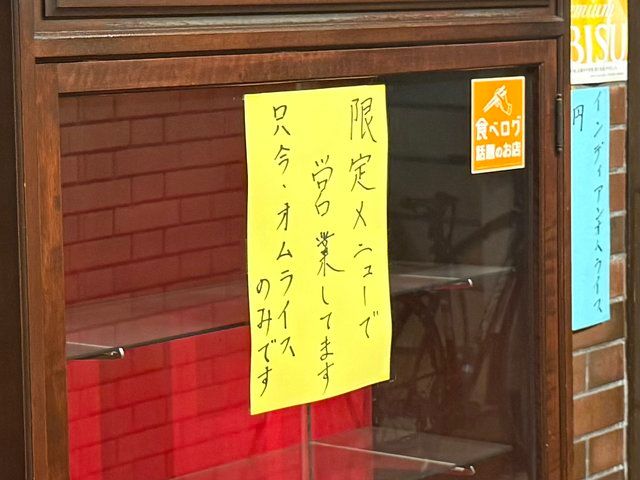 限定メニューで
営業してます
只今・オムライス
のみです
食べログ
話題のお店
インディアンオムライス
円